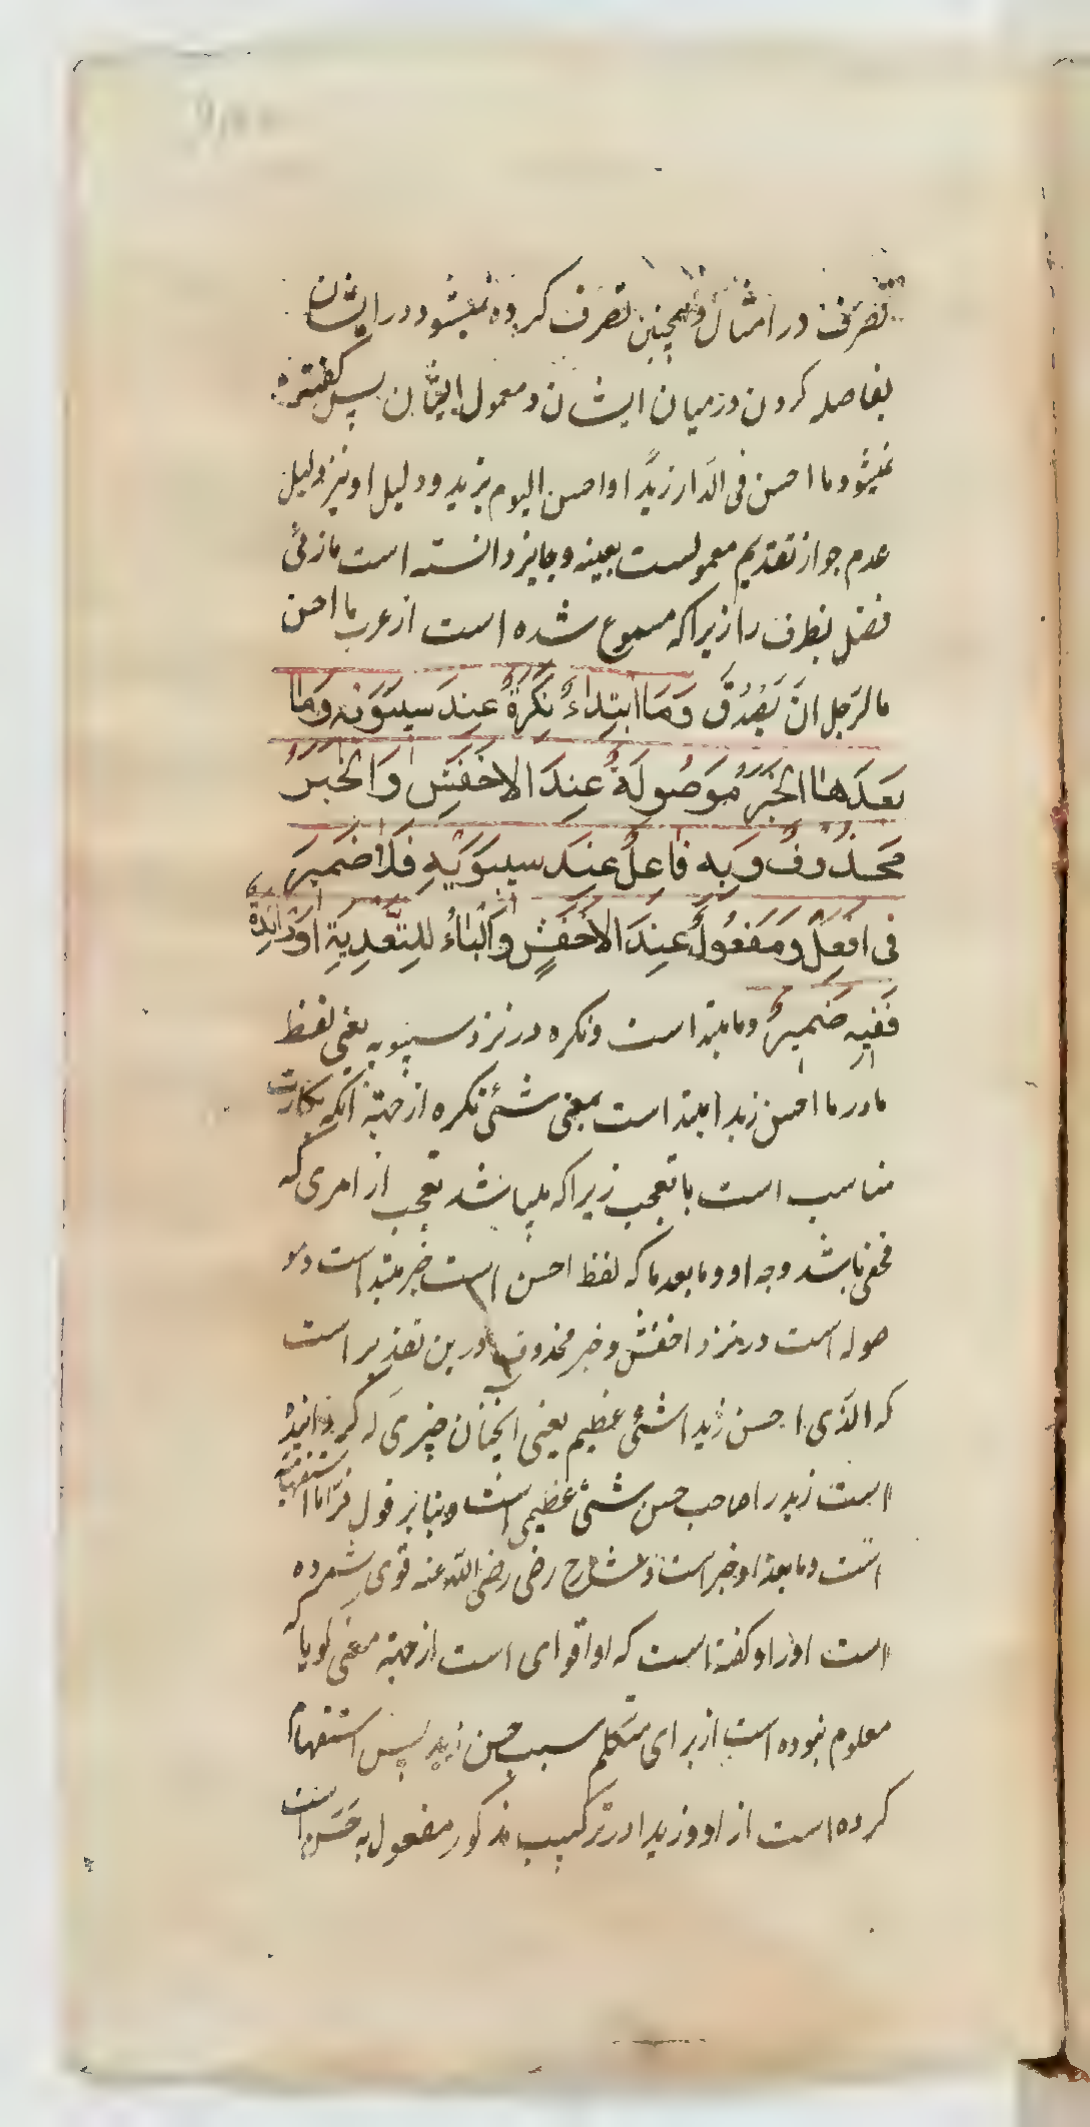 تصرف در امثال و همچنین تصرف کرده نمیشود در ایشان
بفاصله کردن در میان ایشان و معمول ایشان پس گفته
نمیشود ما احسن فی الدار زیدًا و احسن الیوم بزید و دلیل او نیز دلیل
عدم جواز تقدیم معمولست بعینه و جایز دانسته است مازنی
فصل بظرف را زیرا که مسموع شده است از عرب ما احسن
بالرجل ان یصدق وَمَا ابتِداءٌ نَکِرَةٌ عِندَ سیبَوَیه وَما
بَعدَها الخَبَرُ مَوصُولَةٌ عِندَ الاَخفَشِ وَالخَبَرُ
مَحذُوفٌ وَبِه فاعِلٌ عِندَ سیبَوَیهِ فَلا ضَمیرَ
فی اَفعِل وَمَفعُولٌ عِندَ الاَخفَشِ وَالباءُ لِلتَّعدِیَةِ اَو زائِدَةٌ
فَفیهِ ضَمیرٌ و ما مبتدا است و نکره در نزد سیبویه یعنی لفظ
ما در ما احسن زیدا مبتدا است بمعنی شئ نکره از جهة آنکه نکارت
مناسب است با تعجب زیرا که میباشد تعجب از امری که
مخفی باشد وجه او و ما بعد ما که لفظ احسن است خبر مبتدا است و مو
صوله است در نزد اخفش و خبر محذوف و درین تقدیر است
که الذی احسن زیدا شئ عظیم یعنی انچنان چیزی که گردانیده
است زید را صاحب حسن شئ عظیمی است و بنا بر قول فرّا ما استفهامیه
است و ما بعد او خبر است و شارح رضی رضی الله عنه قوی شمرده
است او را و گفته است که او اقوای است از جهة معنی گویا که
معلوم نبوده است از برای متکلم سبب حسن زید پس استفهام
کرده است از او و زیدا در ترکیب مذکور مفعول به حَسَن است